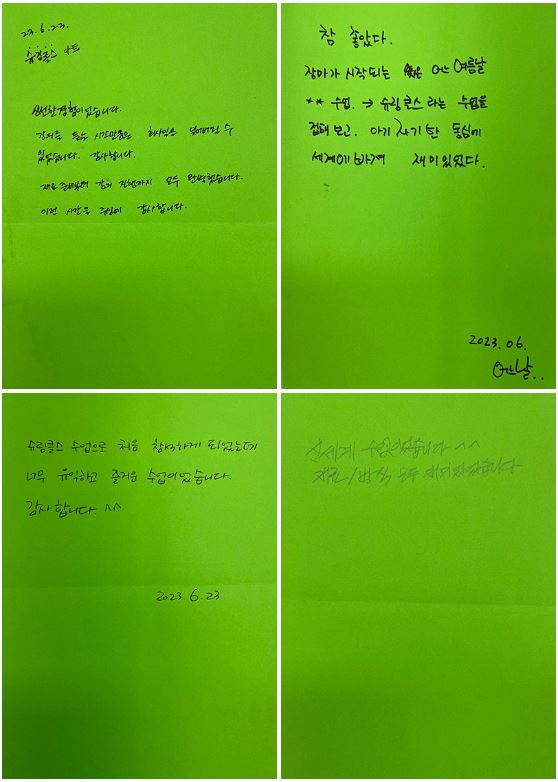 23.6.23.
슈링클스 아트
신선한 경험이었습니다.
강의를 듣는 시간만큼은 회사일은 잊어버릴 수
있었습니다. 감사합니다.
재료 준비부터 강의 진행까지 모두 완벽했습니다.
이런 시간을 주심에 감사합니다.
참 좋았다.
장마가 시작되는 어느 여름날
** 수업. → 슈링클스 라는 수업을
접해 보고. 아기자기한 동심에
세계에 빠져 재미있었다.
2023.06.
어느날..
슈링클스 수업으로 처음 참석하게 되었는데
너무 유익하고 즐거운 수업이었습니다.
감사합니다. ^^
2023.6.23
신세계 수업이었습니다 ^^
재료/방식 모두 재미있었습니다